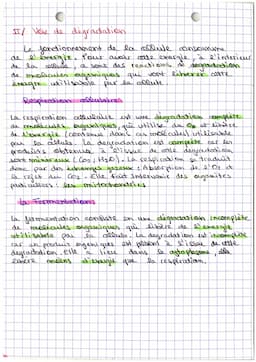 II/ Voie de dégradation
Le fonctionnement de la cellule consomme
de l'énergie. Pour avoir cette énergie, à l'intérieur
de la cellule, a lieu des réactions de dégradation
de molécules organiques qui vont libérer cette
énergie utilisable par la cellule.
Respiration cellulaire
La respiration cellulaire est une dégradation complète
de molécules organiques, qui utilise du O2 et libère
de l'énergie (contenue dans ces molécules) utilisable
par la cellule. La dégradation est complète car les
produits obtenus à l'issue de cette dégradation
sont minéraux (CO2; H2O). La respiration se traduit
donc par des échanges gazeux : Absorption de l'O2 et
le rejet du CO2. Elle fait intervenir des organites
particuliers : les mitochondries
La Fermentation
La fermentation consiste en une dégradation incomplète
de molécules organiques qui libère de l'énergie
utilisable par la cellule. La dégradation est incomplète
car un produit organique est présent à l'issue de cette
dégradation. Elle a lieu dans le cytoplasme, elle
libère moins d'énergie que la respiration.